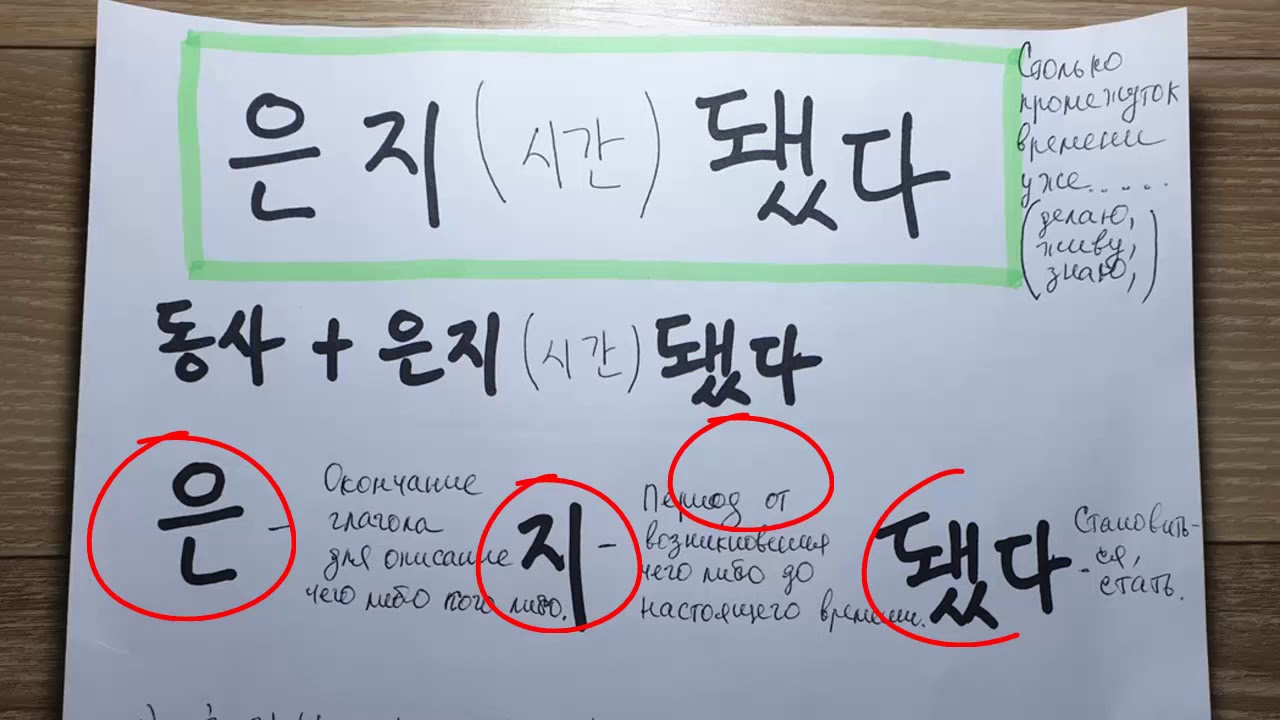 은 지 (시간) 됐다
Столько
промежуток
времени
уже.....
(делаю,
живу,
знаю,)
동사 + 은지 (시간) 됐다
은 -
Окончание
глагола
для описание
чего либо кого либо.
지 -
Период от
возникновения
чего либо до
настоящего времени.
됐다
Становить-
-ся,
стать.